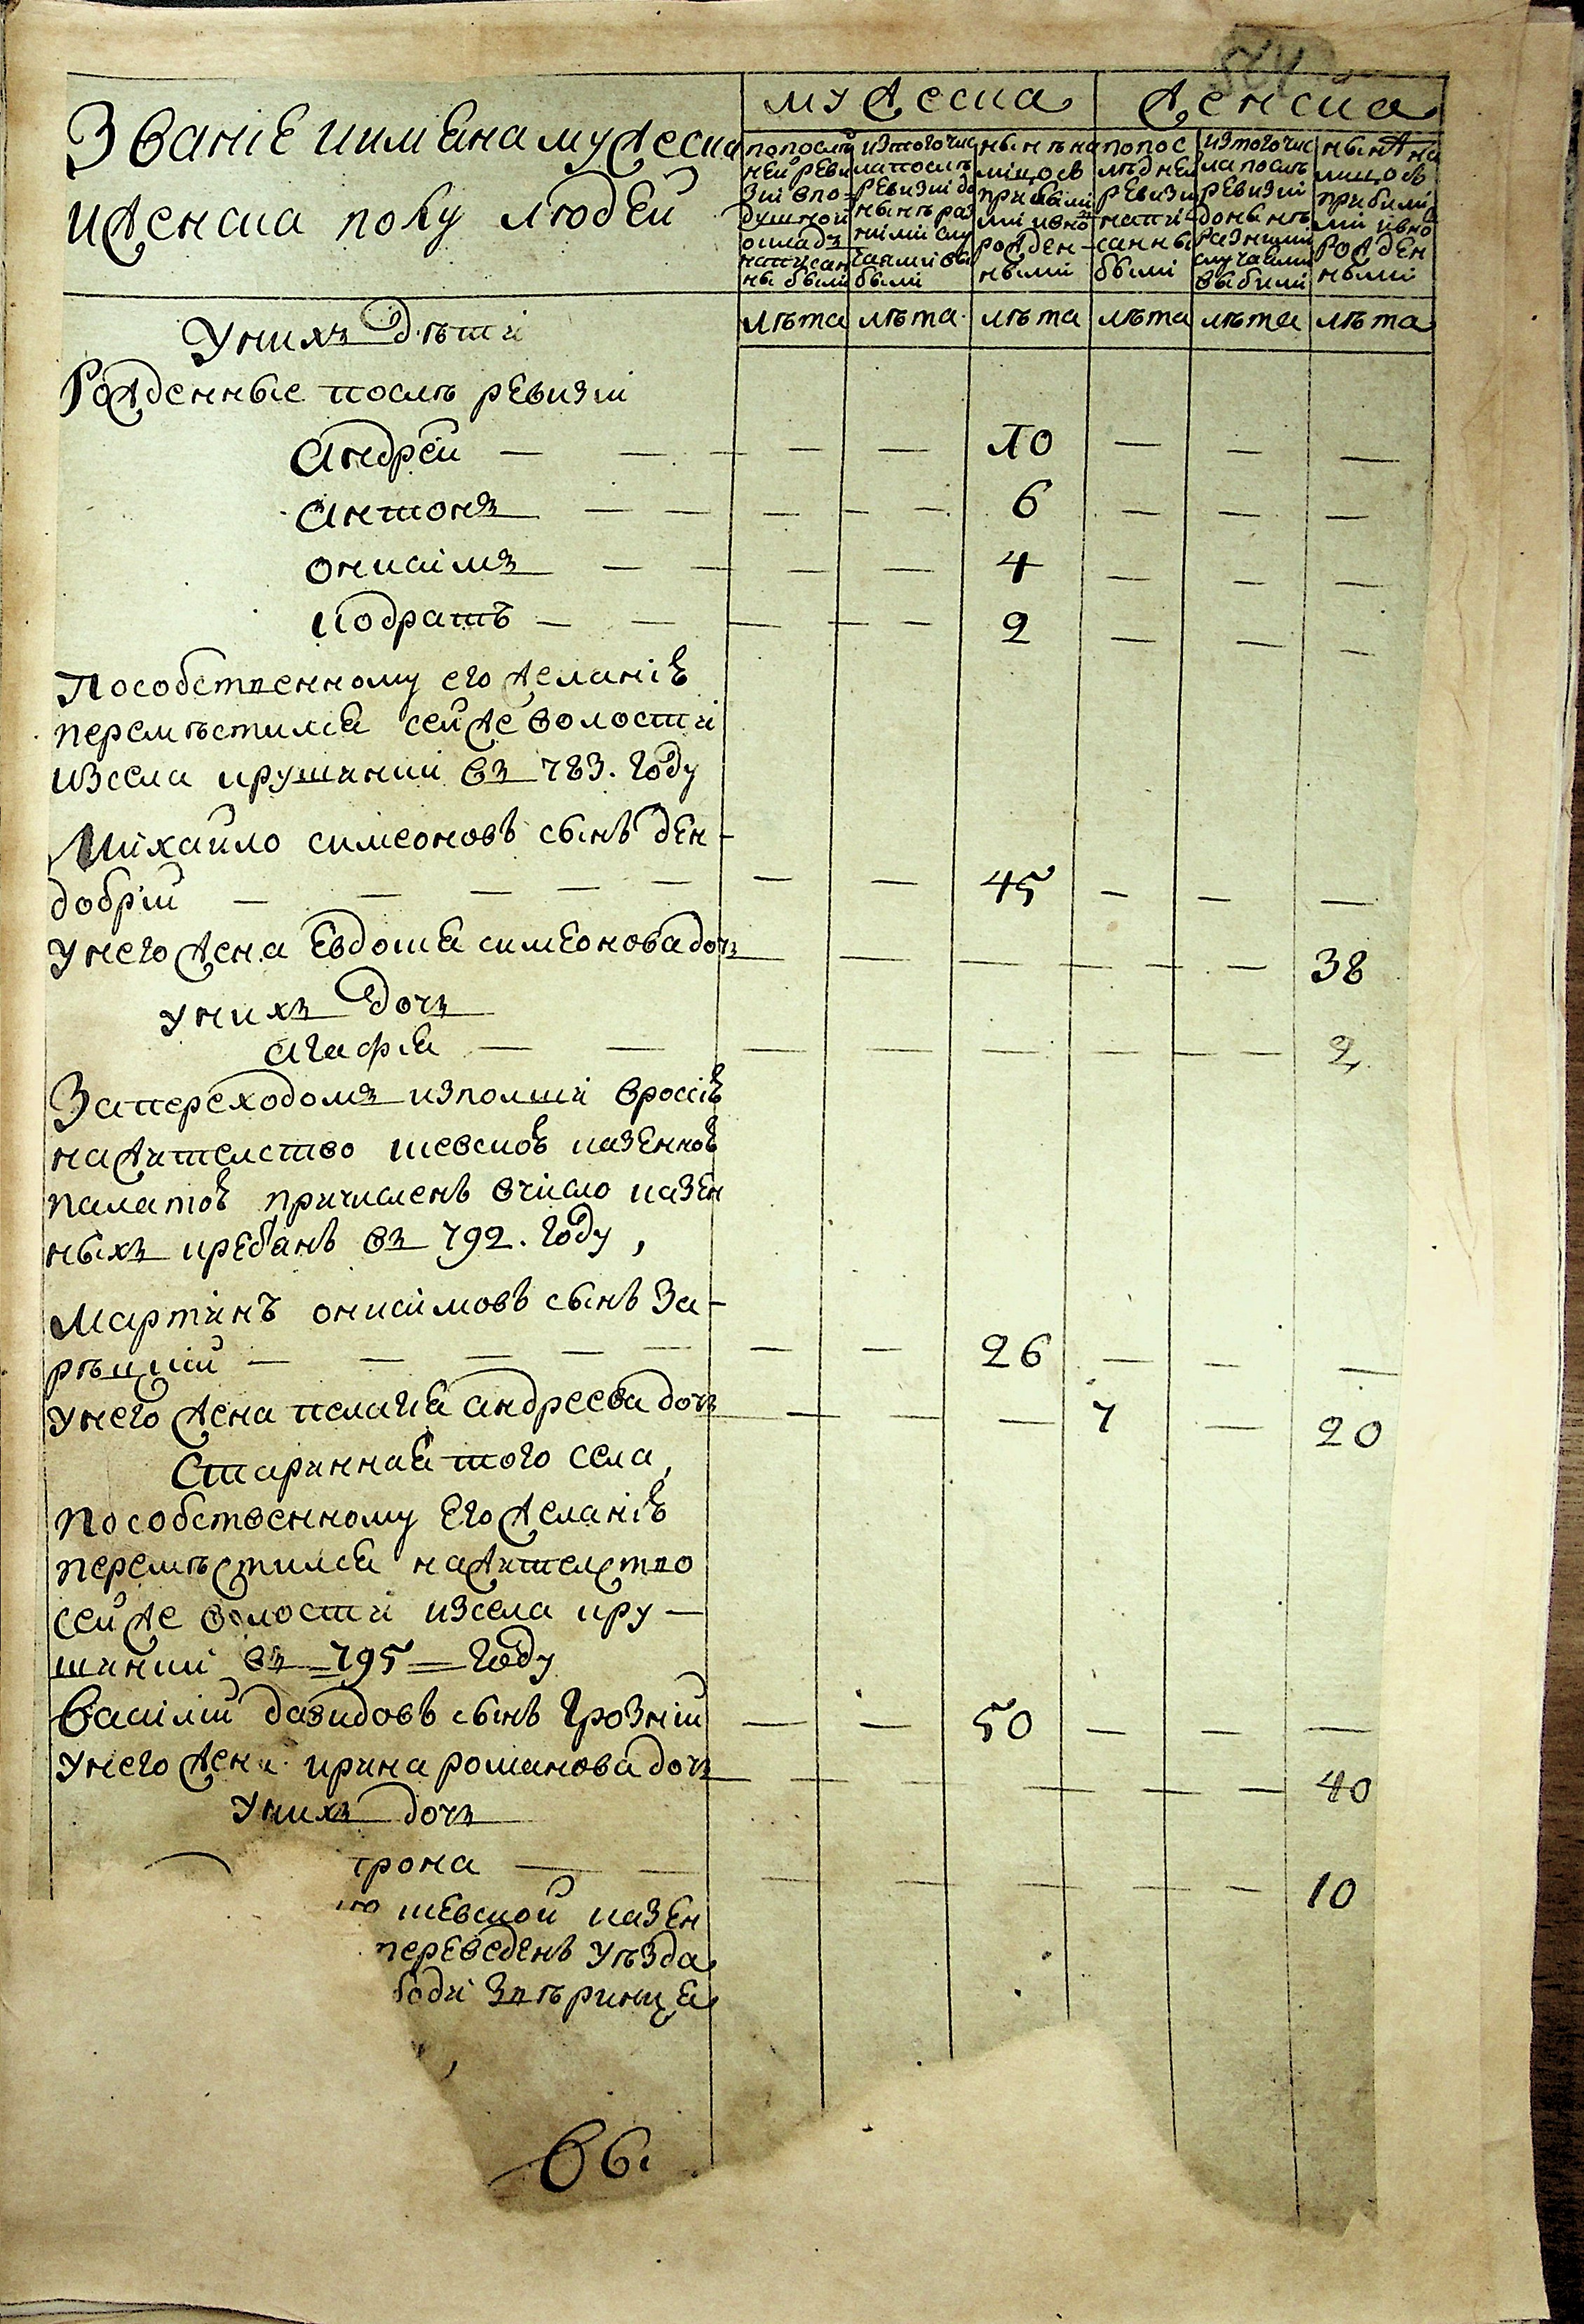 Званіе иимѧна мужеска
иженска полу людей
мужеска
женска
попослѣ
ней реви
зіи впо-
душной
окладъ
написан
ны были
изтогочис
лапослѣ
ревизіи до
нынѣ раз
ними слу
чаями вы
были
нынѣ на
лицо съ
прибыли
ми ивно
рожден-
ными
попос
лѣдней
ревизи
напи-
санны
были
изтогочис
ла послѣ
ревизіи
донынѣ
разними
случаями
выбыли
нынѣ на
лицо съ
прибыли
ми ивно
рожден
ными
Унихъ дѣти
лѣта лѣта лѣта лѣта лѣта лѣта
Рожденные послѣ ревизіи
Андрей — — — — — 10 — — —
Антонъ — — — — — 6 — — —
Онисімъ — — — — 4 — — —
Кодратъ — — — — — 2 — — —
Пособственному его желанію
перемѣстился сейже волости
изсела крушинки въ 783. году
Михайло симеоновъ сынъ ден-
добрій — — — — — — — 45 — — —
Унего жена Евдокия симеонова дочъ — — — — — — 38
унихъ дочъ
Агафія — — — — — — — — 2
Запереходомъ изполши вросію
нажителство киевскою казенною
палатою причисленъ вчисло казен
ныхъ кребанъ въ 792. году,
Мартинъ онисимовъ сынъ За-
рѣцкій — — — — — — — 26 — — —
Унего жена пелагия андреева дочъ — — — 7 — 20
Стариннаѧ того села,
Пособственному Его желанію
перемѣстился нажителство
сейже волости изсела кру-
шинки въ 795 году
Василій давидовъ сынъ Грозній — — 50 — — —
Унего жена ирина романова дочъ — — — — — 40
Унихъ дочъ
трона — — — — — — — 10
ію киевской казен
переведенъ уѣзда
боди Звѣринца
66.